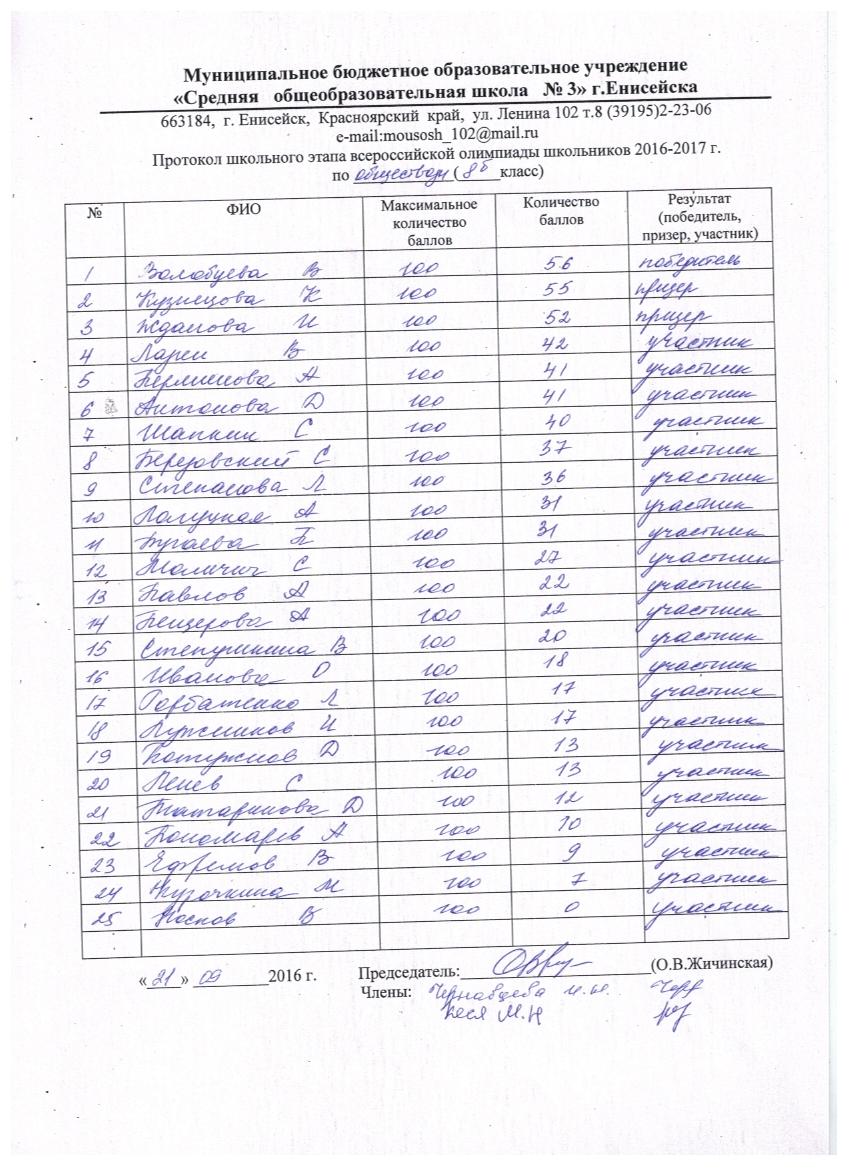 Муниципальное бюджетное образовательное учреждение
«Средняя общеобразовательная школа № 3» г.Енисейска
663184, г. Енисейск, Красноярский край, ул. Ленина 102 т.8 (39195)2-23-06
e-mail:mousosh_102@mail.ru
Протокол школьного этапа всероссийской олимпиады школьников 2016-2017 г.
по обществозн (8б класс)
№ ФИО Максимальное количество баллов Количество баллов Результат (победитель, призер, участник)
1 Волобуева В 100 56 победитель
2 Кузнецова К 100 55 призер
3 Жданова И 100 52 призер
4 Ларен В 100 42 участник
5 А 100 41 участник
6 Антонова Д 100 41 участник
7 Шапкин С 100 40 участник
8 Березовский С 100 37 участник
9 Степанова Л 100 36 участник
10 А 100 31 участник
11 Бугаева П 100 31 участник
12 С 100 27 участник
13 Павлов А 100 22 участник
14 Пещерова А 100 22 участник
15 Степушкина В 100 20 участник
16 Иванова О 100 18 участник
17 Горбатенко Л 100 17 участник
18 И 100 17 участник
19 Д 100 13 участник
20 С 100 13 участник
21 Татаринова Д 100 12 участник
22 Пономарев А 100 10 участник
23 Ефремов В 100 9 участник
24 Курочкина М 100 7 участник
25 В 100 0 участник
«21» 09 2016 г. Председатель: (О.В.Жичинская)
Члены: Чернавцева И.Н.
Кеся М.Н